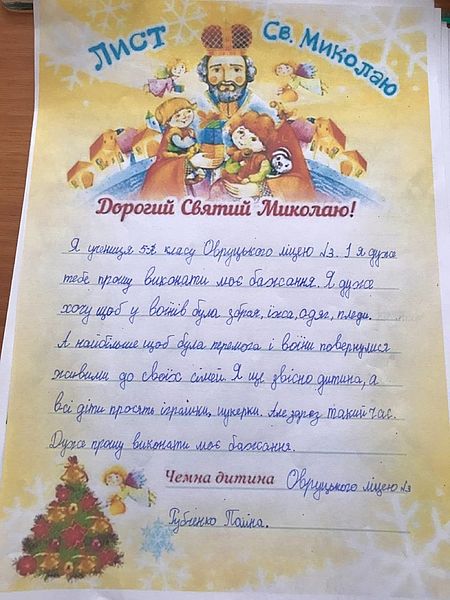 Лист Св. Миколаю
Дорогий Святий Миколаю!
Я учениця 5-А класу Овруцького ліцею №3. І я дуже
тебе прошу виконати моє бажання. Я дуже
хочу щоб у воїнів була зброя, їжа, одяг, пледи.
А найбільше щоб була перемога і воїни повернулися
живими до своїх сімей. Я ще звісно дитина, а
всі діти просять іграшки, цукерки. Але зараз такий час.
Дуже прошу виконати моє бажання.
Чемна дитина Овруцького ліцею №3